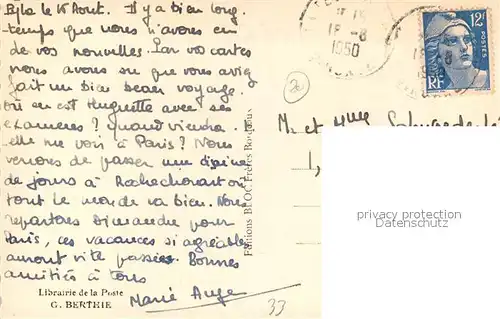 le 15 Aout. Il y a bien long-
temps que nous n'avons eu
de vos nouvelles. Par vos cartes
nous avons su que vous aviez
fait un bien beau voyage.
où en est Huguette avec ses
examens ? Quand viendra
elle me voir à Paris ? Nous
venons de passer une dizaine
de jours à Rochechouart où
tout le monde va bien. Nous
repartons dimanche pour
Paris, ces vacances si agréables
auront vite passées. Bonnes
amitiés à tous
Marie Ange
33
Librairie de la Poste
G. BERTHIE
Editions BLOC Frères Bordeaux
18-8
1950
12F
POSTES
RF
M et Mme
privacy protection
Datenschutz